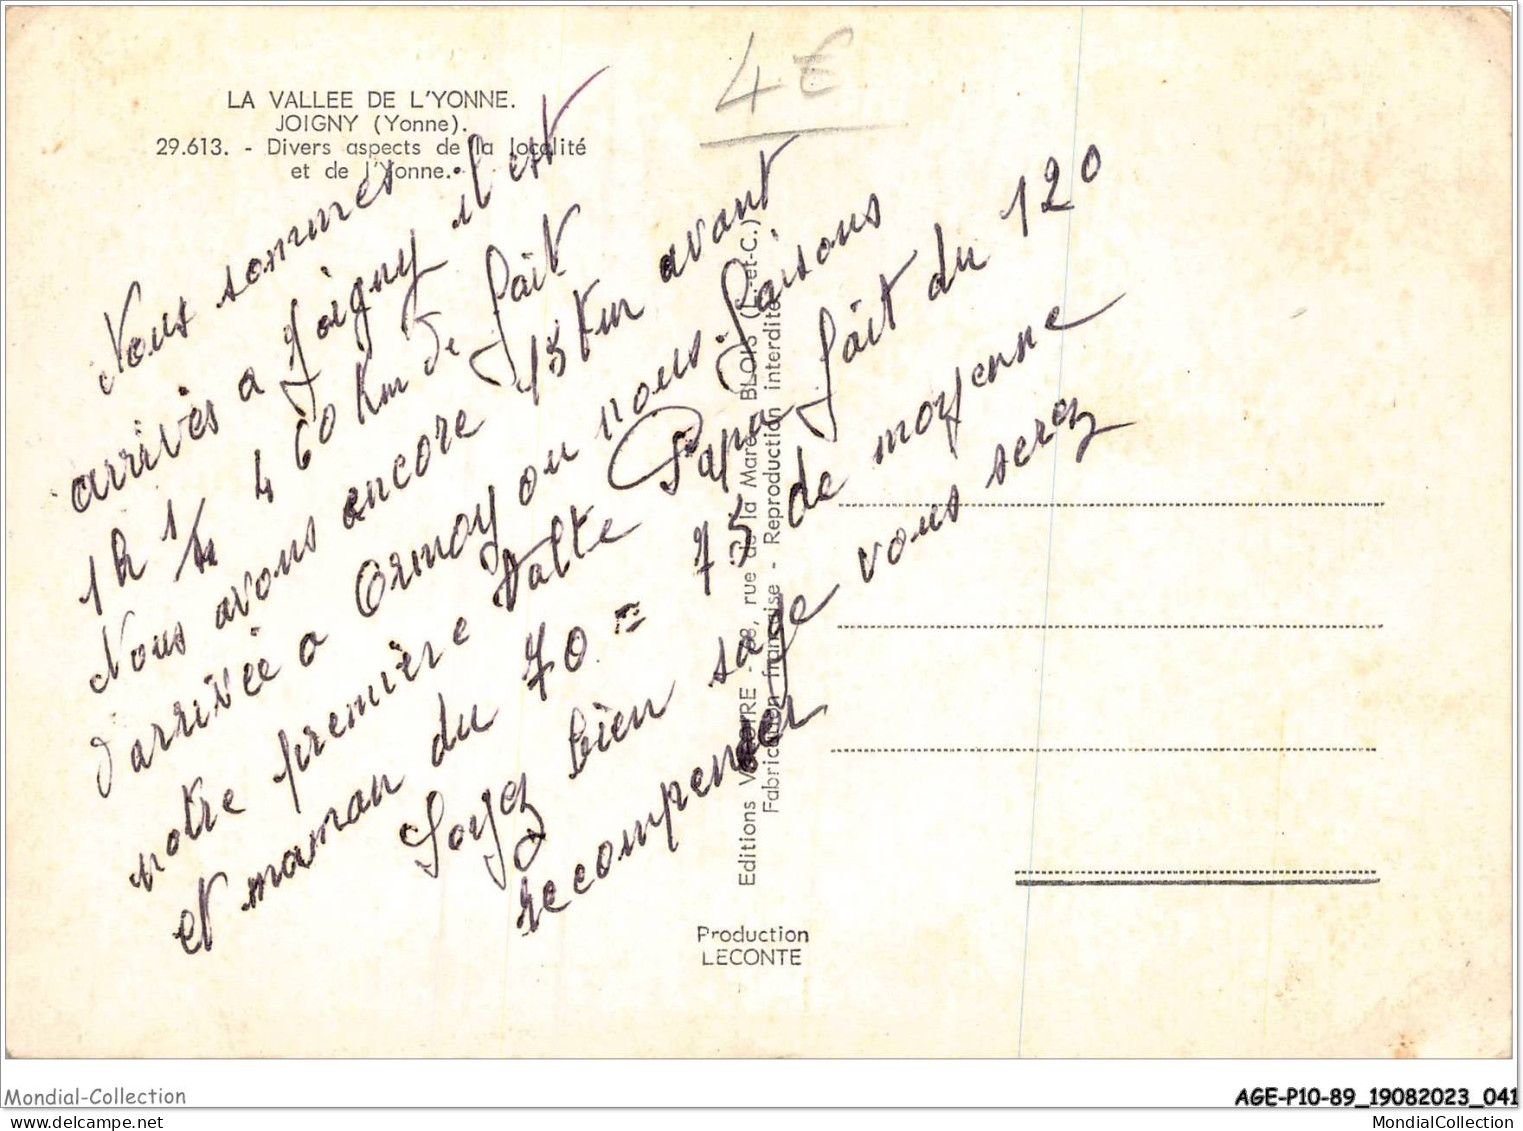 4€
LA VALLEE DE L'YONNE.
JOIGNY (Yonne).
29.613. - Divers aspects de la localité
et de l'Yonne.
Nous sommes
arrivés a Joigny il est
1h 1/4 60 Km de fait
Nous avons encore 15 Km avant
l'arrivée a Ormoy ou nous faisons
notre première halte Papa fait du 120
et maman du 70 = 75 de moyenne
Soyez bien sage vous serez
recompenser
Editions VALOIRE - 98, rue de la Mare BLOIS (L.-et-C.)
Fabrication française - Reproduction interdite
Production
LECONTE
Mondial-Collection
AGE-P10-89_19082023_041
MondialCollection